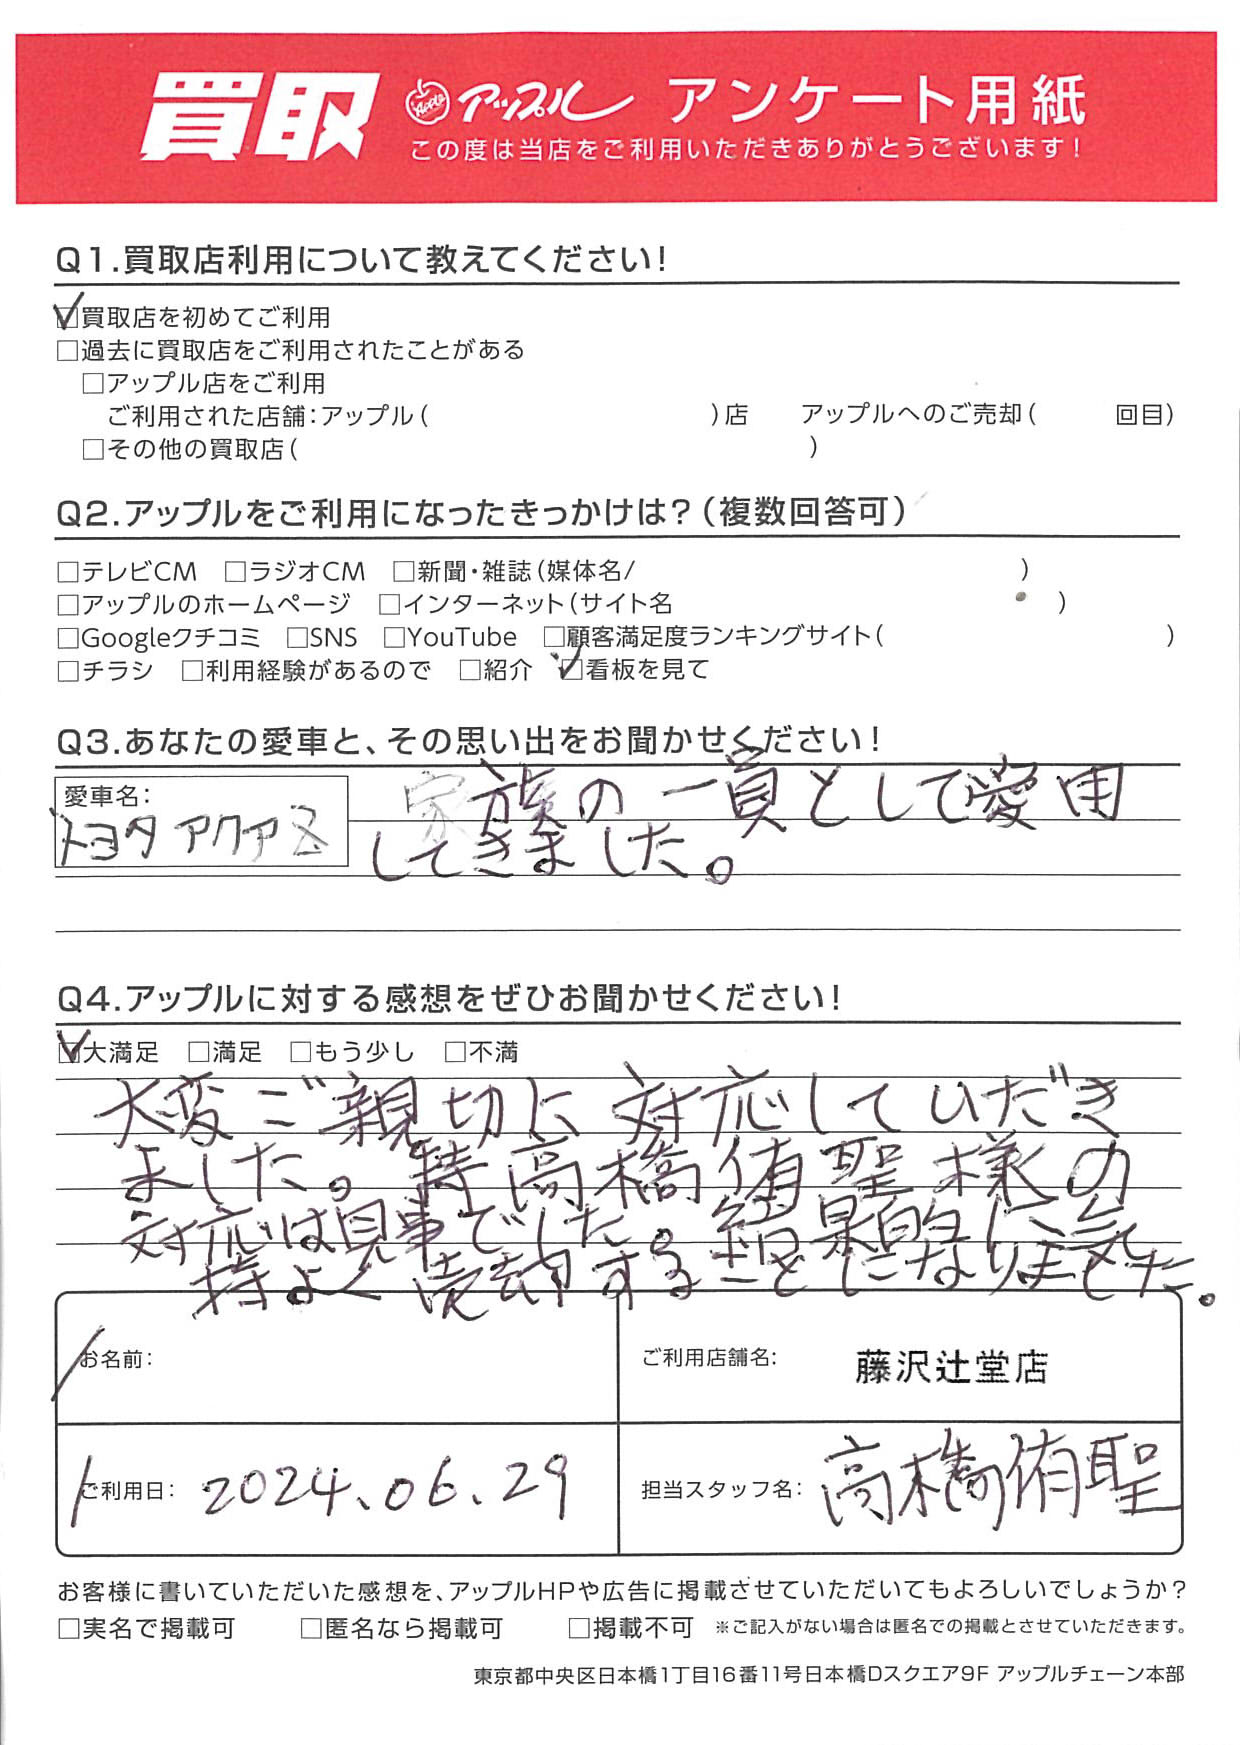 買取 Apple アップル アンケート用紙
この度は当店をご利用いただきありがとうございます！
Q1.買取店利用について教えてください！
☑買取店を初めてご利用
□過去に買取店をご利用されたことがある
□アップル店をご利用
ご利用された店舗：アップル（ ）店 アップルへのご売却（ 回目）
□その他の買取店（ ）
Q2.アップルをご利用になったきっかけは？（複数回答可）
□テレビCM □ラジオCM □新聞・雑誌（媒体名/ ）
□アップルのホームページ □インターネット（サイト名 ）
□Googleクチコミ □SNS □YouTube □顧客満足度ランキングサイト（ ）
□チラシ □利用経験があるので □紹介 ☑看板を見て
Q3.あなたの愛車と、その思い出をお聞かせください！
愛車名：
トヨタ アクア
家族の一員として愛用
してきました。
Q4.アップルに対する感想をぜひお聞かせください！
☑大満足 □満足 □もう少し □不満
大変ご親切に対応していただき
ました。特高橋侑聖様の
対応は見事でした。結果的に気
持よく売却することになりました。
お名前： ご利用店舗名： 藤沢辻堂店
ご利用日： 2024、06、29 担当スタッフ名： 高橋侑聖
お客様に書いていただいた感想を、アップルHPや広告に掲載させていただいてもよろしいでしょうか？
□実名で掲載可 □匿名なら掲載可 □掲載不可 ※ご記入がない場合は匿名での掲載とさせていただきます。
東京都中央区日本橋1丁目16番11号日本橋Dスクエア9F アップルチェーン本部